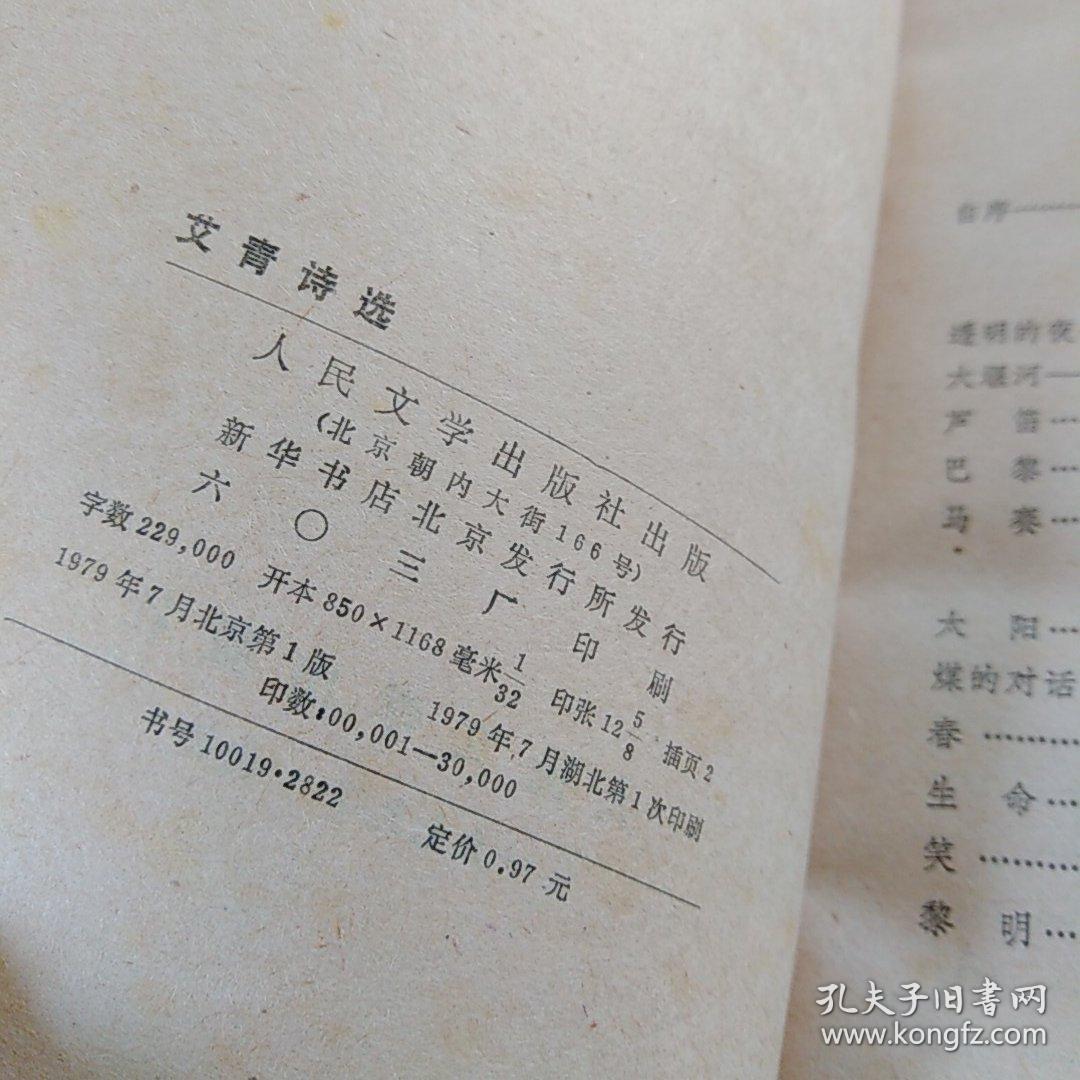 艾青诗选
人民文学出版社出版
(北京朝内大街166号)
新华书店北京发行所发行
六〇三厂印刷
字数229,000 开本850×1168毫米1/32 印张12 5/8 插页2
1979年7月北京第1版 1979年7月湖北第1次印刷
印数:00,001—30,000
书号10019·2822 定价0.97元
自序——
透明的夜
大堰河—
芦笛…
巴黎…
马赛…
太阳…
煤的对话
春………
生命…
笑………
黎明…
孔夫子旧書网
www.kongfz.com